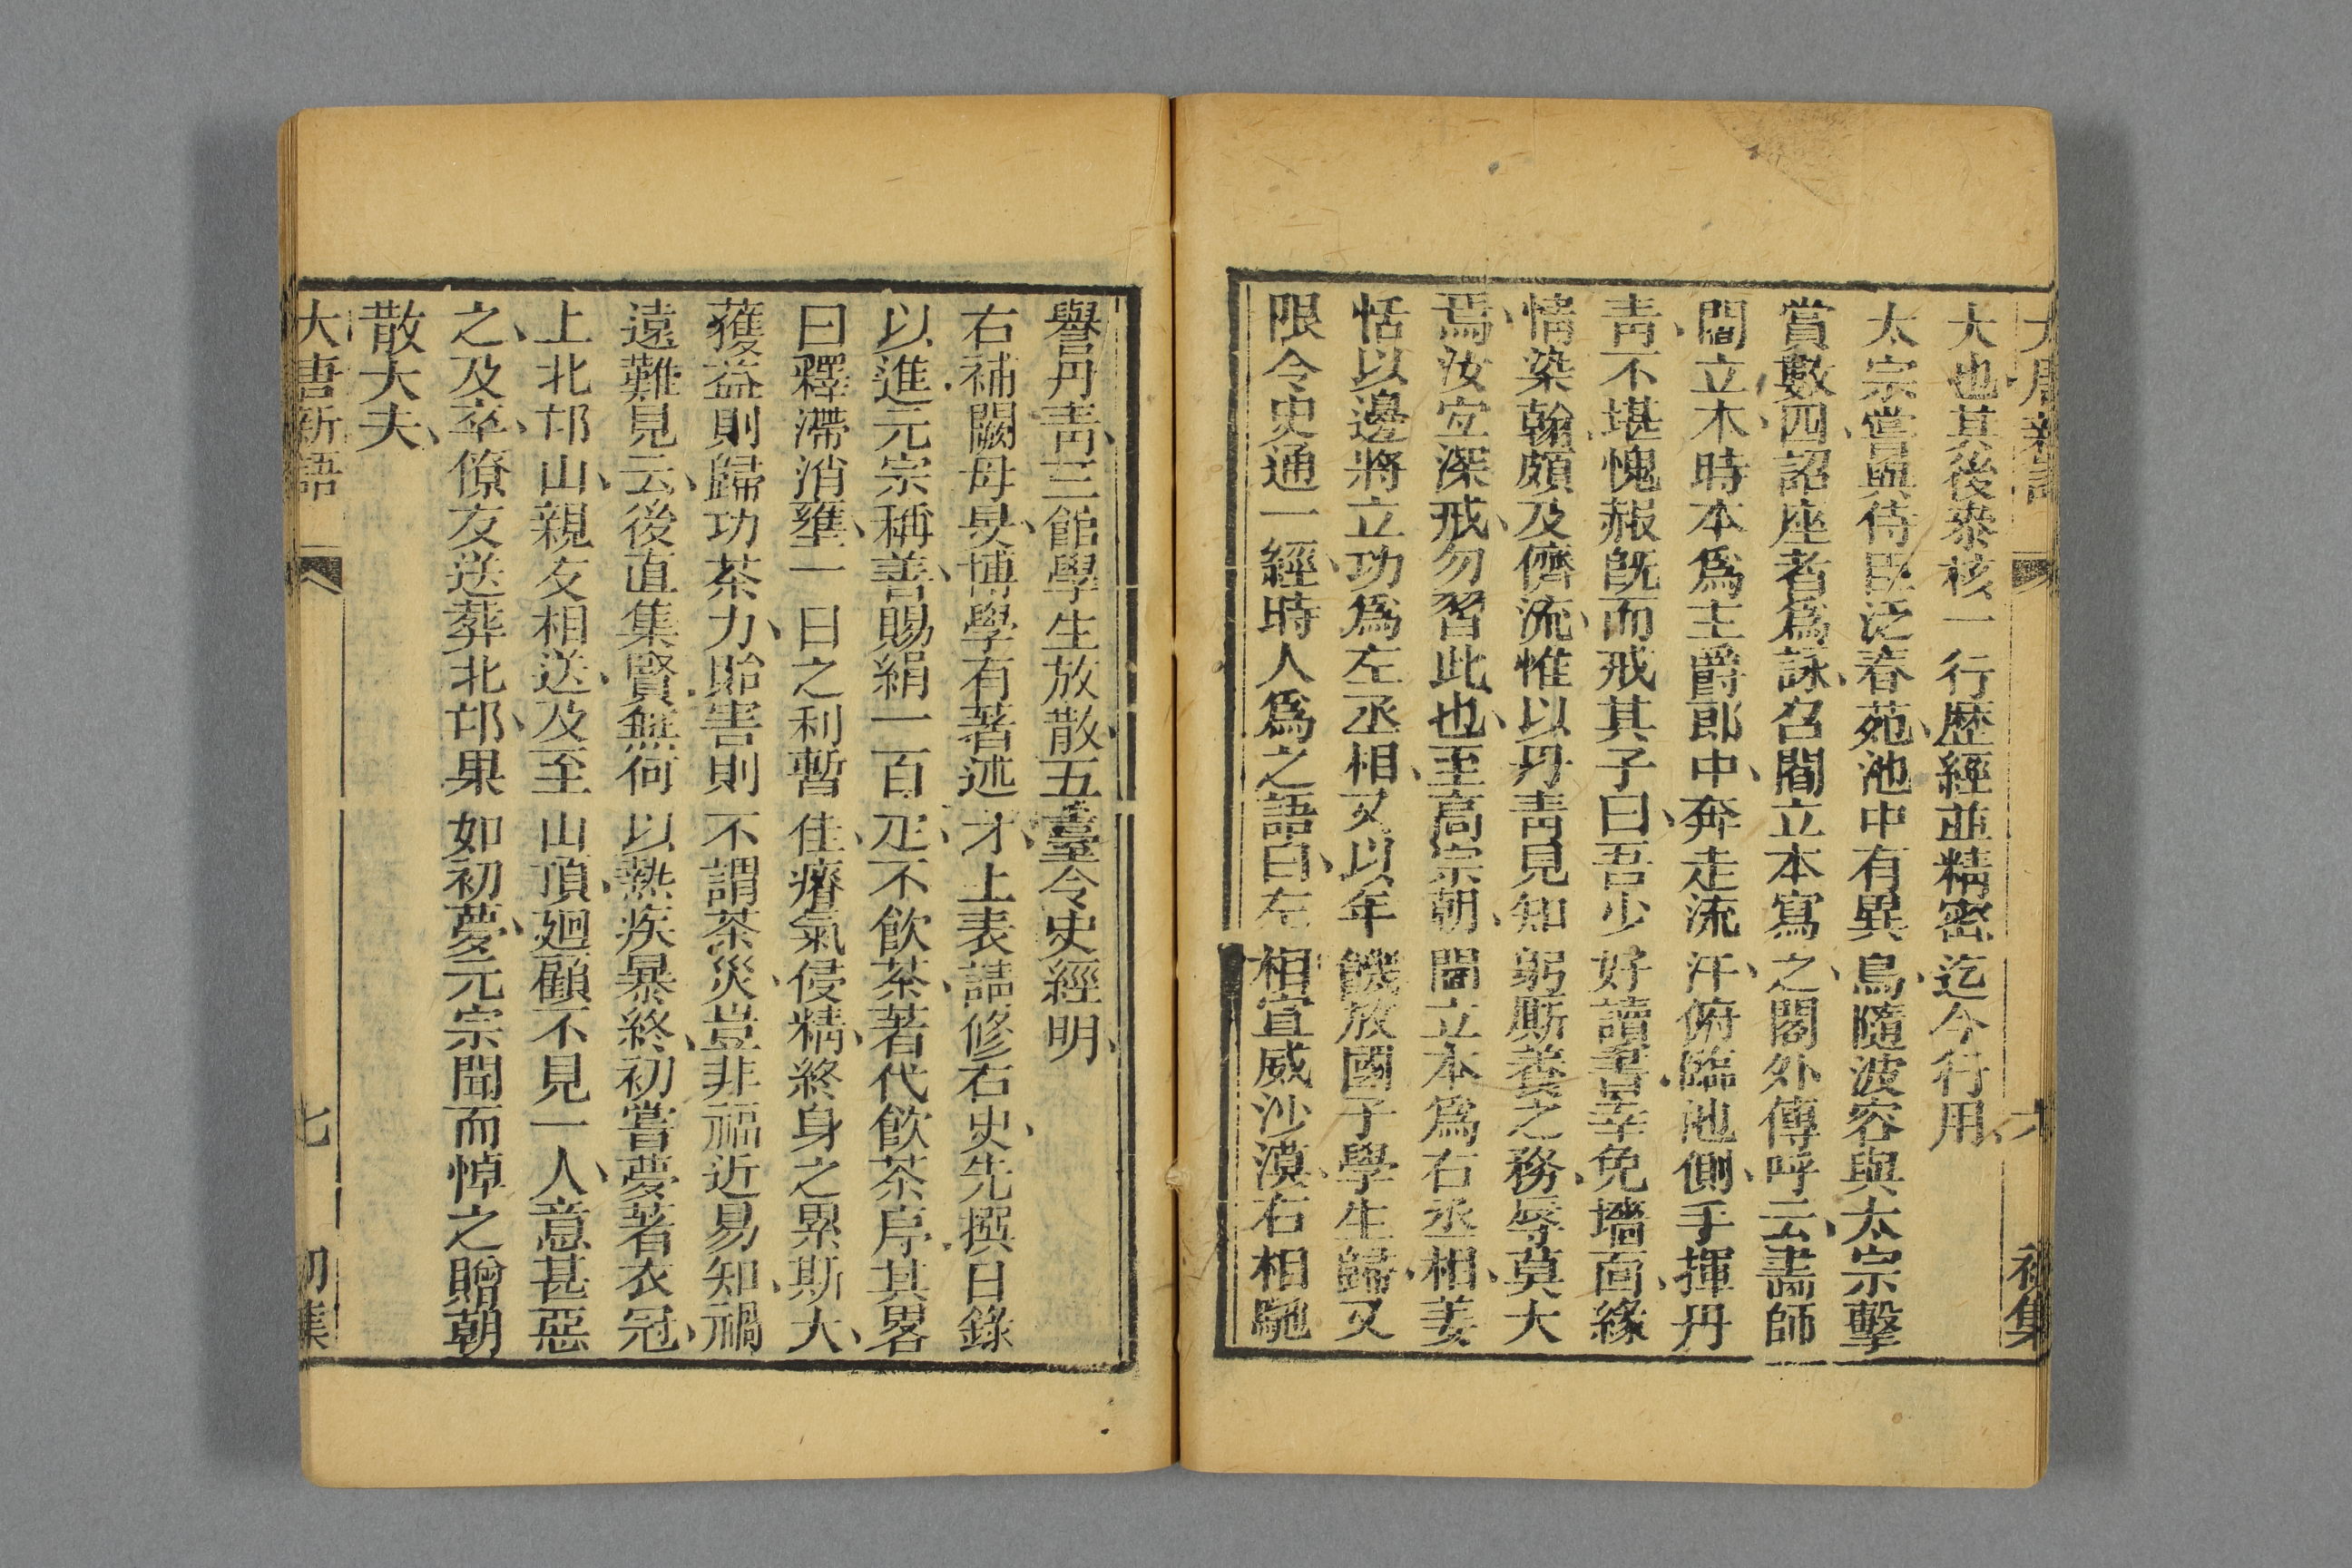 大唐新語 六 初集
大也其後叅核一行歷經並精密迄今行用
太宗嘗與侍臣泛春苑池中有異鳥隨波容與太宗擊
賞數四詔座者爲詠召閻立本寫之閣外傳呼云畵師
閻立本時本爲主爵郎中奔走流汗俯臨池側手揮丹
靑不堪愧赧旣而戒其子曰吾少好讀書幸免墻面緣
情染翰頗及儕流惟以丹靑見知躬厮養之務辱莫大
焉汝宜深戒勿習此也至高宗朝閻立本爲右丞相姜
恬以邊將立功爲左丞相又以年饑放國子學生歸又
限令史通一經時人爲之語曰左相宣威沙漠右相馳
譽丹靑三館學生放散五臺令史經明
右補闕母炅博學有著述才上表請修石史先撰目錄
以進元宗稱善賜絹一百疋不飮茶著代飮茶序其畧
曰釋滯消壅一日之利暫佳瘠氣侵精終身之累斯大
獲益則歸功茶力貽害則不謂茶災豈非福近易知禍
遠難見云後直集賢無何以熱疾暴終初嘗夢著衣冠
上北邙山親友相送及至山頂廻顧不見一人意甚惡
之及卒僚友送葬北邙果如初夢元宗聞而悼之贈朝
散大夫
大唐新語 七 初集